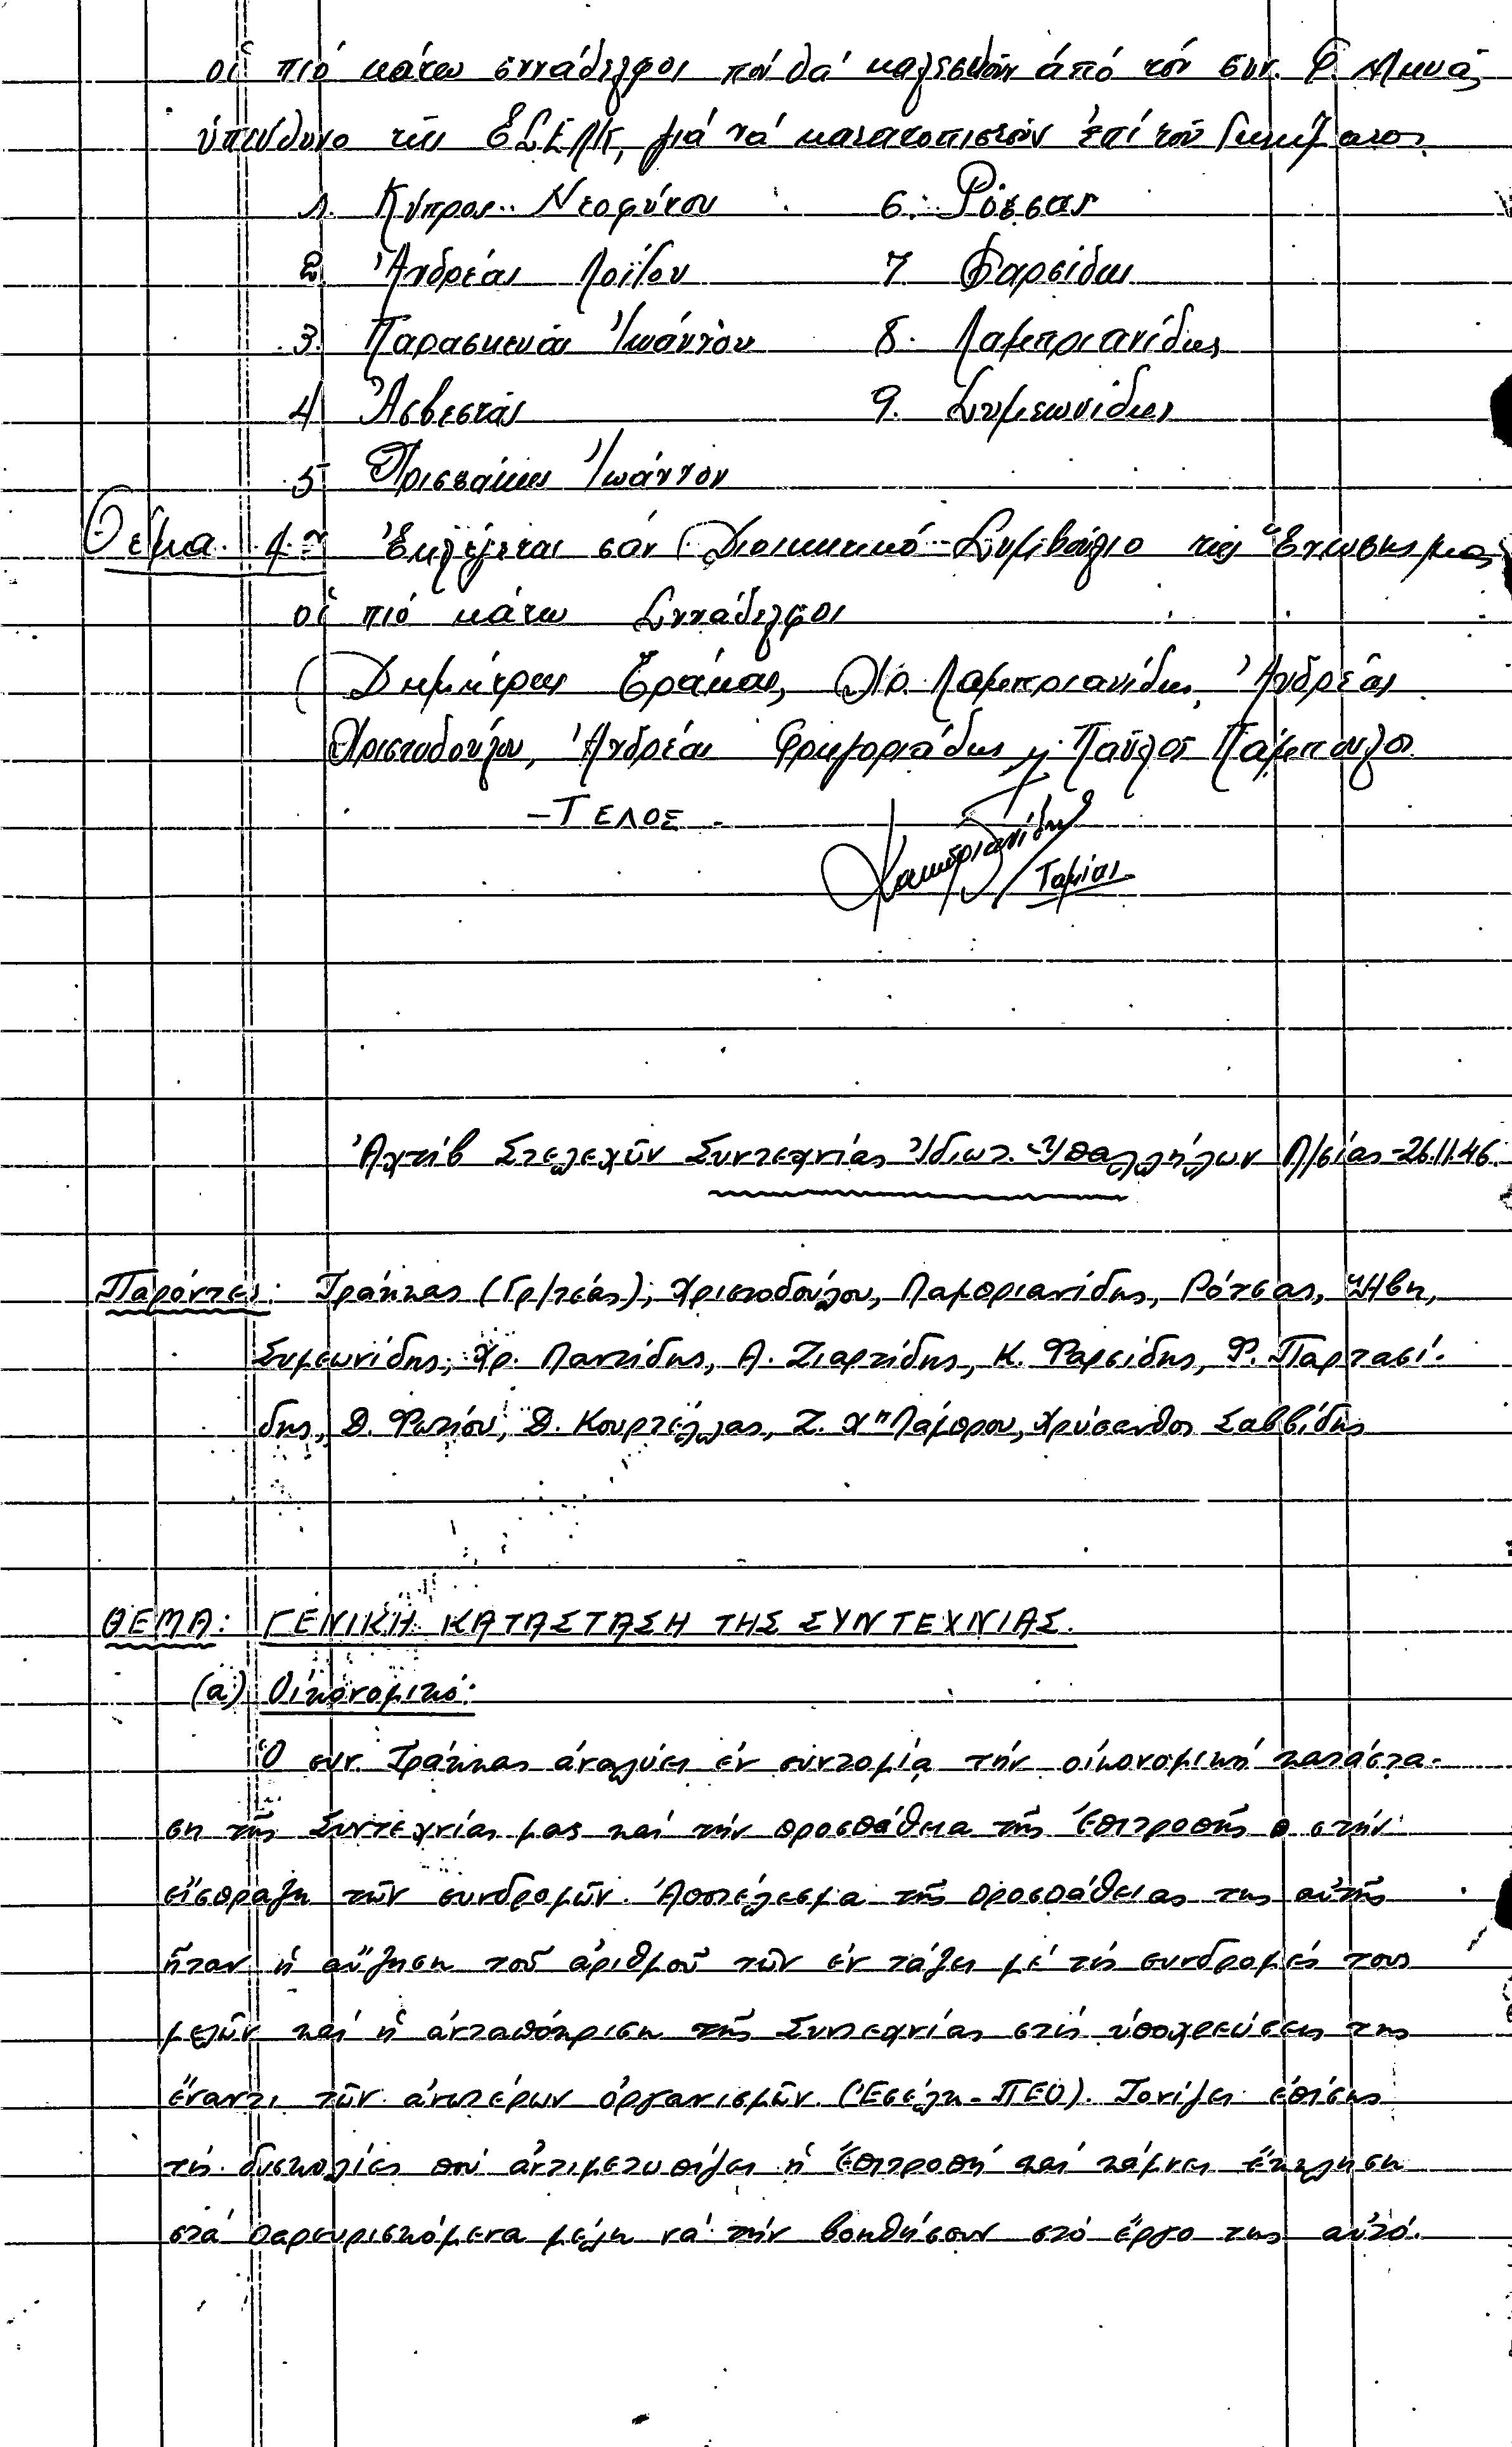 οἱ πιό κάτω συνάδελφοι πού θά καλεσθοῦν ἀπό τόν συν. Φ. Μηνᾶ
ὑπεύθυνο τῆς ΕΣΕΛΚ, γιά νά κατατοπιστοῦν ἐπί τοῦ ζητήματος.
1. Κύπρος Νεοφύτου 6. Ρότσας
2. Ἀνδρέας Λοΐζου 7 Φαρσίδης
3. Παρασκευάς Ἰωάννου 8. Λαμπριανίδης
4 Ἀσβεστάς 9. Συμεωνίδης
5 Χριστάκης Ἰωάννου
Θέμα 4ον Ἐκλέγεται σάν Διοικητικό Συμβούλιο τῆς Ἕνωσης μας
οἱ πιό κάτω Συνάδελφοι
Δημήτρης Τράκκας, Χρ. Λαμπριανίδης, Ἀνδρέας
Χριστοδούλου, Ἀνδρέας Γρηγοριάδης ἤ Παῦλος Πάμπουλος
– ΤΕΛΟΣ –
Λαμπριανίδης
Ταμίας
Ἀχτίβ Στελεχῶν Συντεχνίας Ἰδιωτ. Ὑπαλλήλων Λ/σίας - 26.11.46.
Παρόντες: Τράκκας (Γρ/τέας), Χριστοδούλου, Λαμπριανίδης, Ρότσας, Ἥβη,
Συμεωνίδης, Χρ. Παντίδης, Α. Ζιαρτίδης, Κ. Φαρσίδης, Φ. Παρτασί-
δης, Δ. Φωτίου, Δ. Κουρτέλλας, Ζ. Χ" Λάμπρου, Χρύσανθος Σαββίδης
ΘΕΜΑ: ΓΕΝΙΚΗ ΚΑΤΑΣΤΑΣΗ ΤΗΣ ΣΥΝΤΕΧΝΙΑΣ.
(α) Οἰκονομικό:
Ὁ συν. Τράκκας ἀναλύει ἐν συντομίᾳ τήν οἰκονομική κατάστα-
ση τῆς Συντεχνίας μας καί τήν προσπάθεια τῆς Ἐπιτροπῆς στήν
εἴσπραξη τῶν συνδρομῶν. Ἀποτέλεσμα τῆς προσπάθειας της αὐτῆς
ἦταν ἡ αὔξηση τοῦ ἀριθμοῦ τῶν ἐν τάξει μέ τίς συνδρομές τους
μελῶν καί ἡ ἀνταπόκριση τῆς Συντεχνίας στίς ὑποχρεώσεις της
ἔναντι τῶν ἀνωτέρων ὀργανισμῶν (Ἐσέλκ - ΠΕΟ). Τονίζει ἐπίσης
τίς δυσκολίες πού ἀντιμετωπίζει ἡ Ἐπιτροπή καί κάμνει ἔκκληση
στά παρευρισκόμενα μέλη νά τήν βοηθήσουν στό ἔργο της αὐτό.